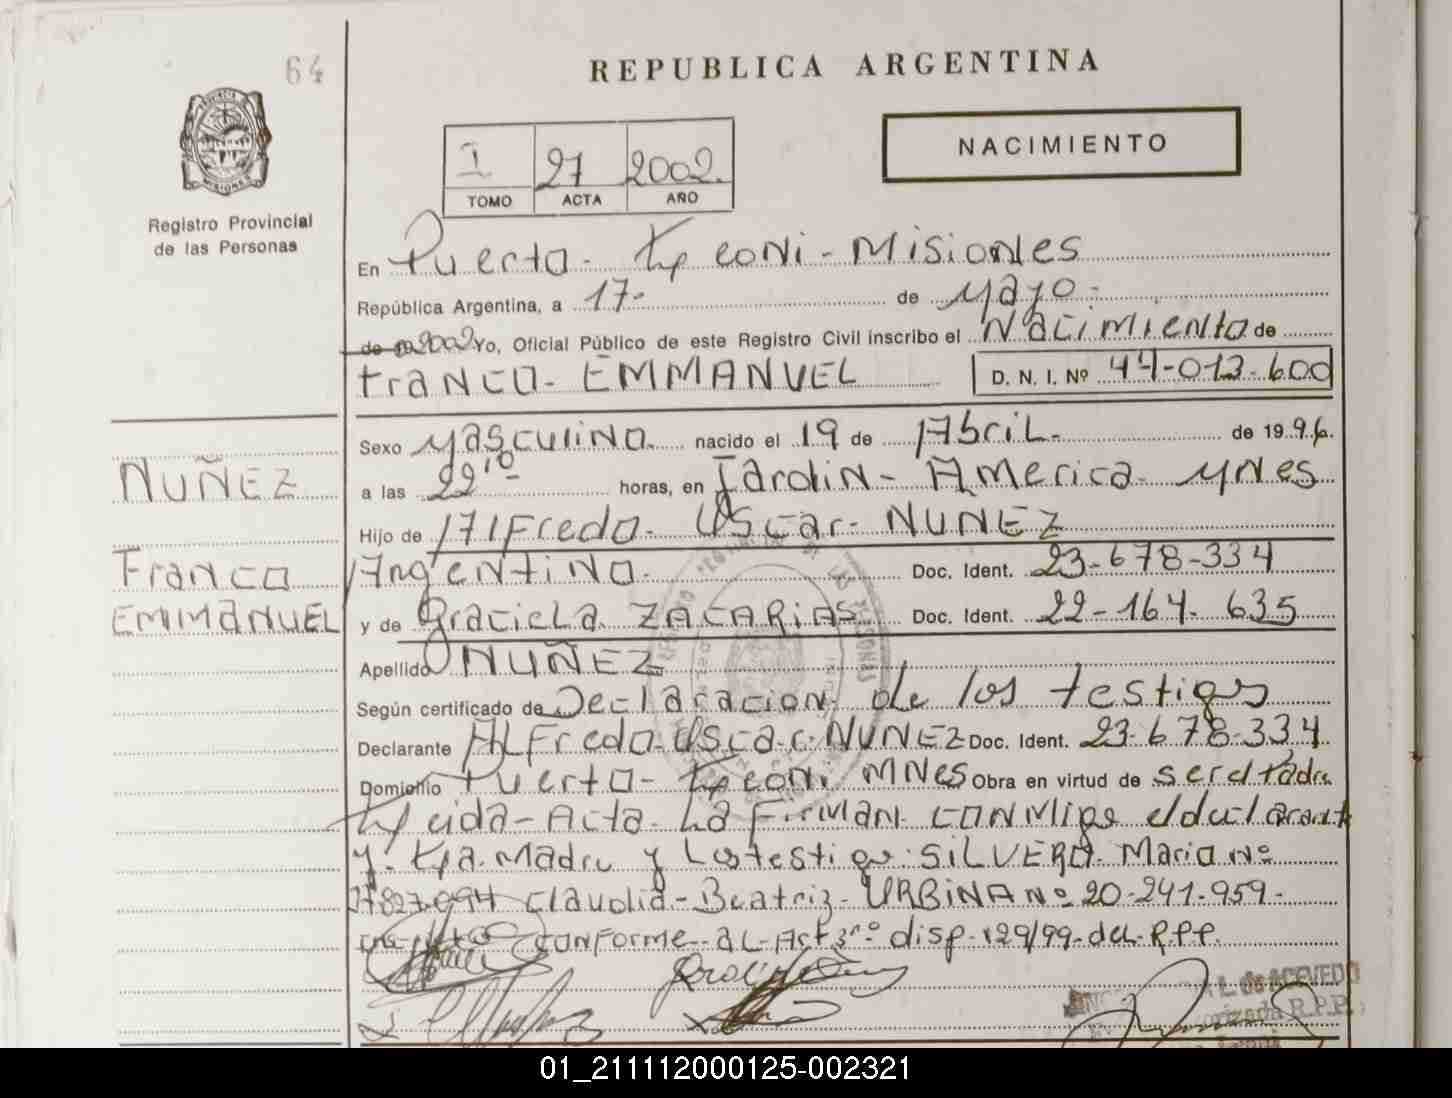 64
REPUBLICA ARGENTINA
NACIMIENTO
I 27 2002.
TOMO ACTA AÑO
Registro Provincial
de las Personas
En Puerto- Leoni-Misiones
República Argentina, a 17- de Mayo-
de 2002 Yo, Oficial Público de este Registro Civil inscribo el Nacimiento de
FranCO- EMMANUEL D. N. I. Nº 44-013-600
Sexo Masculino. nacido el 19 de Abril. de 1996.
NUÑEZ
a las 22¹⁰ horas, en Jardin- America- MNes
Hijo de Alfredo- Oscar- NUNEZ
Franco
Argentino. Doc. Ident. 23-678-334
EMMANUEL
y de Graciela ZACARIAS Doc. Ident. 22-164-635
Apellido NUÑEZ
Según certificado de Declaracion de los testigos
Declarante ALFredo-Oscar-NUNEZ Doc. Ident. 23-678-334
Domicilio Puerto- Leoni MNes Obra en virtud de ser el Padre
Leida-Acta-La Firman conmigo el declarante
y-La-Madre y Los testigos SILVERO-Mario Nº
Claudia-Beatriz-URBINA Nº 20-241-959-
conforme-al-Art 3º disp-129/99-del-R.P.P.
L. de ACEVEDO
R.P.P.
01_211112000125-002321